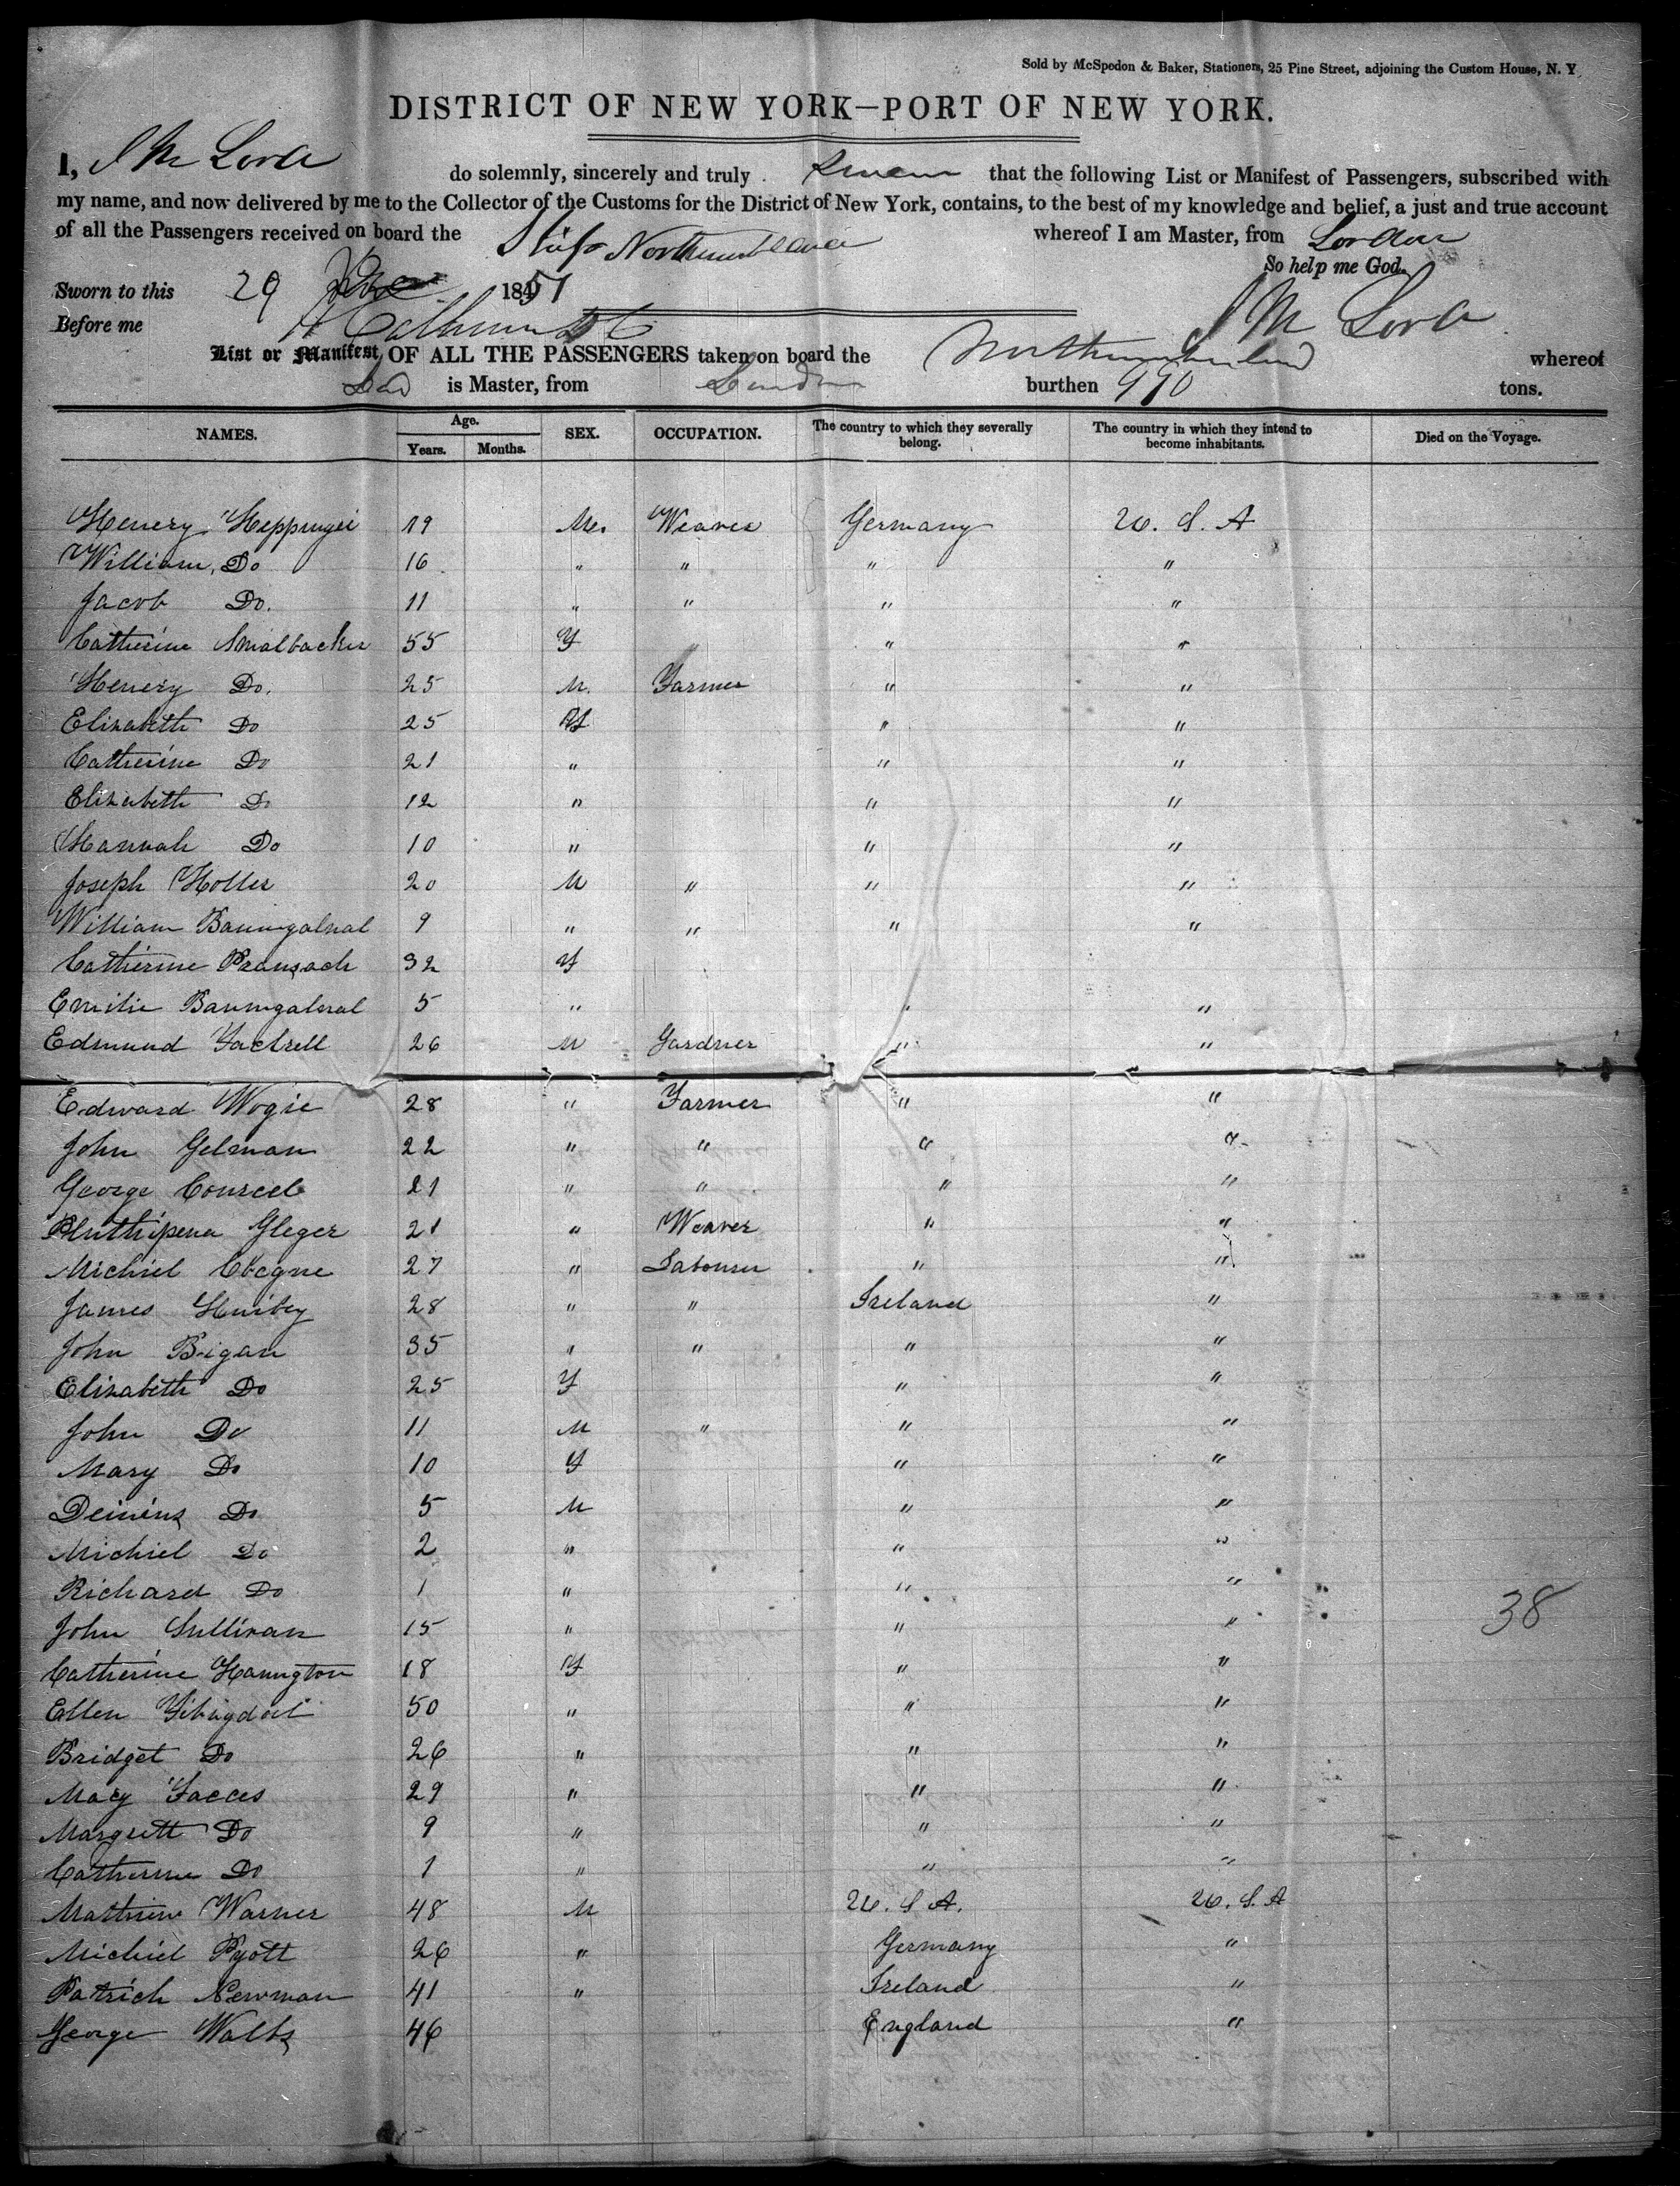 Sold by McSpedon & Baker, Stationers, 25 Pine Street, adjoining the Custom House, N. Y
DISTRICT OF NEW YORK—PORT OF NEW YORK.
I, J M Lord do solemnly, sincerely and truly swear that the following List or Manifest of Passengers, subscribed with
my name, and now delivered by me to the Collector of the Customs for the District of New York, contains, to the best of my knowledge and belief, a just and true account
of all the Passengers received on board the Ship Northumberland whereof I am Master, from London
So help me God.
Sworn to this 29 1851
Before me J M Lord
List or Manifest OF ALL THE PASSENGERS taken on board the Northumberland whereof
Lord is Master, from London burthen 990 tons.
NAMES. Age. Years. Months. SEX. OCCUPATION. The country to which they severally belong. The country in which they intend to become inhabitants. Died on the Voyage.
Henery 19 M. Weaver Germany U. S. A
William, Do 16 " " " "
Jacob Do. 11 " " " "
Catherine Smalbacker 55 F " " "
Henery Do. 25 M. Farmer " "
Elizabeth Do 25 F " "
Catherine Do 21 " " "
Elizabeth Do 12 " " "
Hannah Do 10 " " "
Joseph Holler 20 M " " "
William 9 " " " "
Catherine 32 F
Emilie 5 " " "
Edmund 26 M Gardner " "
Edward Wogie 28 " Farmer " "
John Gelman 22 " " " "
George 21 " " " "
Gleger 21 " Weaver " "
Michiel 27 " Labourer " "
James 28 " " Ireland "
John Bigan 35 " " " "
Elizabeth Do 25 F " "
John Do 11 M " " "
Mary Do 10 F " "
Do 5 M " "
Michiel Do 2 " " "
Richard Do 1 " " "
38
John Sullivan 15 " " "
Catherine Hanington 18 F " "
Ellen 50 " " "
Bridget Do 26 " " "
Mary 29 " " "
Margrett Do 9 " " "
Catherine Do 1 " " "
Warner 48 M U. S. A. U. S. A
Michiel Pyott 26 " Germany "
Patrich Newman 41 " Ireland "
George 46 England "